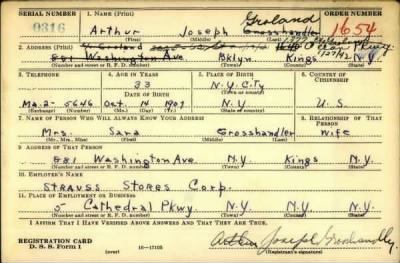 SERIAL NUMBER 1. NAME (Print) Groland ORDER NUMBER
0316 Arthur Joseph Grosshandler 1654
(First) (Middle) (Last)
2. ADDRESS (Print)
881 Washington Ave. Bklyn. Kings N.Y.
(Number and street or R. F. D. number) (Town) (County) (State)
3. TELEPHONE 4. AGE IN YEARS 5. PLACE OF BIRTH 6. COUNTRY OF CITIZENSHIP
33 N.Y. City
DATE OF BIRTH (Town or county)
Ma.2-5646 Oct. 14 1907 N.Y. U.S.
(Exchange) (Number) (Mo.) (Day) (Yr.) (State or country)
7. NAME OF PERSON WHO WILL ALWAYS KNOW YOUR ADDRESS 8. RELATIONSHIP OF THAT PERSON
Mrs. Sara Grosshandler Wife
(Mr., Mrs., Miss) (First) (Middle) (Last)
9. ADDRESS OF THAT PERSON
881 Washington Ave. N.Y. Kings N.Y.
(Number and street or R. F. D. number) (Town) (County) (State)
10. EMPLOYER'S NAME
Strauss Stores Corp.
11. PLACE OF EMPLOYMENT OR BUSINESS
5 Cathedral Pkwy N.Y. N.Y. N.Y.
(Number and street or R. F. D. number) (Town) (County) (State)
I AFFIRM THAT I HAVE VERIFIED ABOVE ANSWERS AND THAT THEY ARE TRUE.
REGISTRATION CARD Arthur Joseph Grosshandler
D. S. S. Form 1 (over) 16—17105 (Registrant's signature)